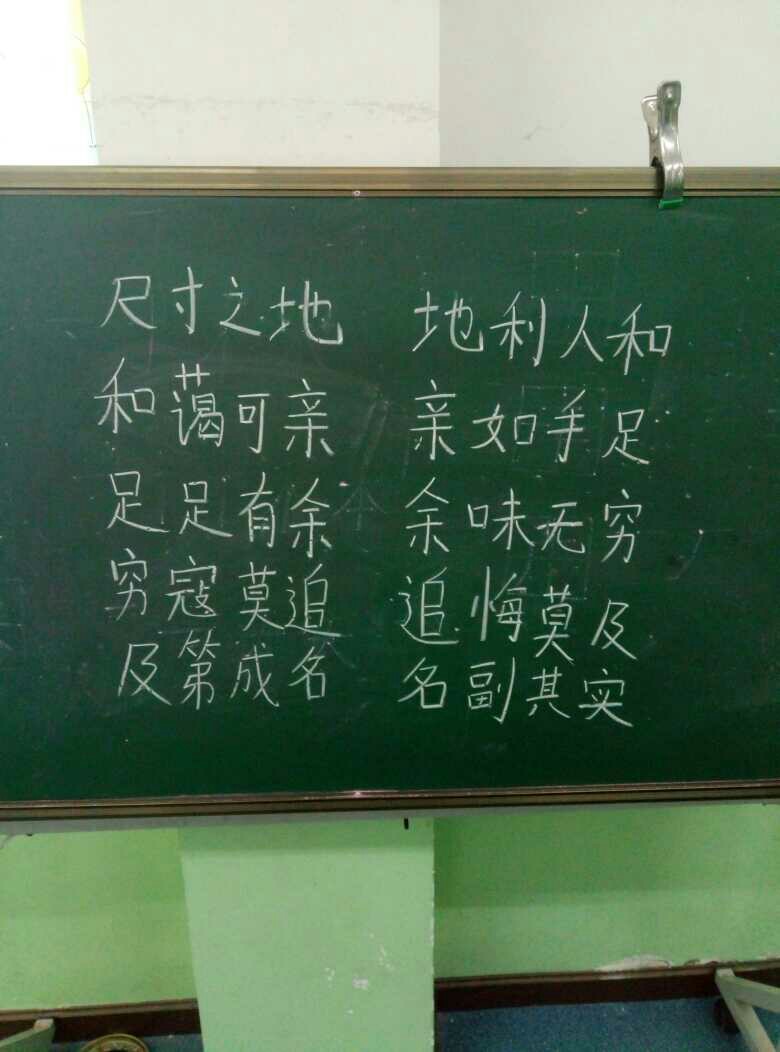 尺寸之地 地利人和
和蔼可亲 亲如手足
足足有余 余味无穷
穷寇莫追 追悔莫及
及第成名 名副其实